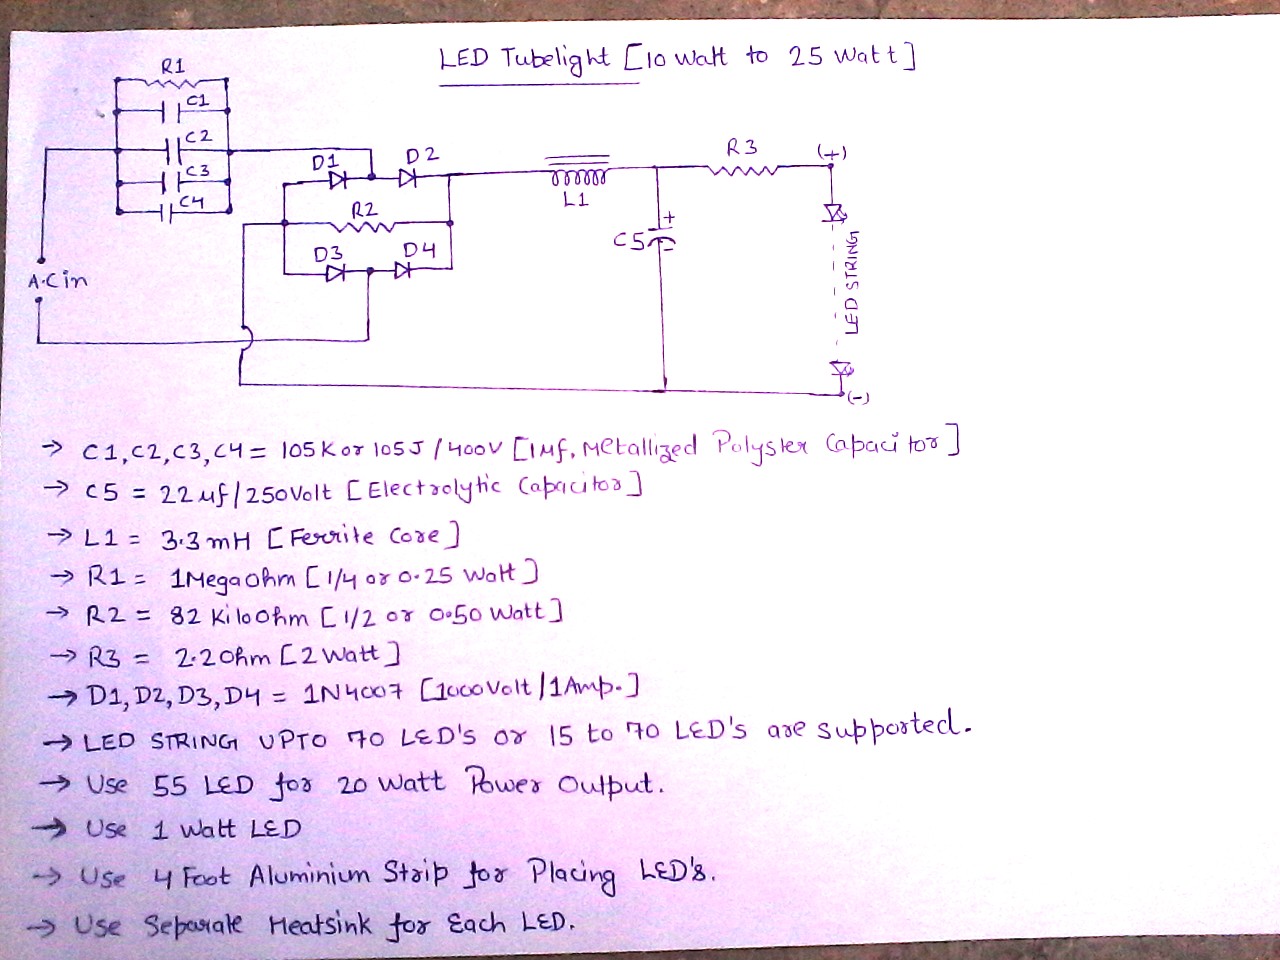 LED Tubelight [10 Watt to 25 Watt]
R1
C1
C2
C3
C4
A.C in
D1
D2
R2
D3
D4
L1
C5
+
-
R3
(+)
LED STRING
(-)
→ C1,C2,C3,C4 = 105K or 105J /400V [1Mf, Metallized Polyster Capacitor]
→ C5 = 22µf/250Volt [Electrolytic Capacitor]
→ L1 = 3.3mH [Ferrite Core]
→ R1 = 1Megaohm [1/4 or 0.25 Watt]
→ R2 = 82 KiloOhm [1/2 or 0.50 Watt]
→ R3 = 2.2Ohm [2 Watt]
→ D1, D2, D3, D4 = 1N4007 [1000Volt/1Amp.]
→ LED STRING UPTO 70 LED'S or 15 to 70 LED's are supported.
→ Use 55 LED for 20 Watt Power Output.
→ Use 1 Watt LED
→ Use 4 Foot Aluminium Strip for Placing LED's.
→ Use Separate Heatsink for Each LED.